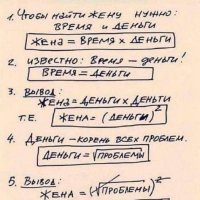 1. Чтобы найти жену нужно:
время и деньги
жена = время х деньги
2. известно: время – деньги!
время = деньги
3. Вывод:
жена = деньги х деньги
т.е. жена = (деньги)²
4. Деньги – корень всех проблем.
деньги = √проблемы
5. Вывод:
жена = (√проблемы)²